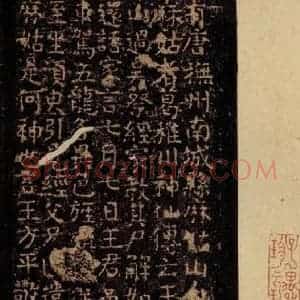 有唐撫州南城縣麻姑山仙
姑者葛稚川神仙傳云王
山過吳蔡經家教其尸解如
還語家言七月七日王君
車駕五龍各異色旌
至坐須臾引見經父兄
麻姑是何神也言王方平敬